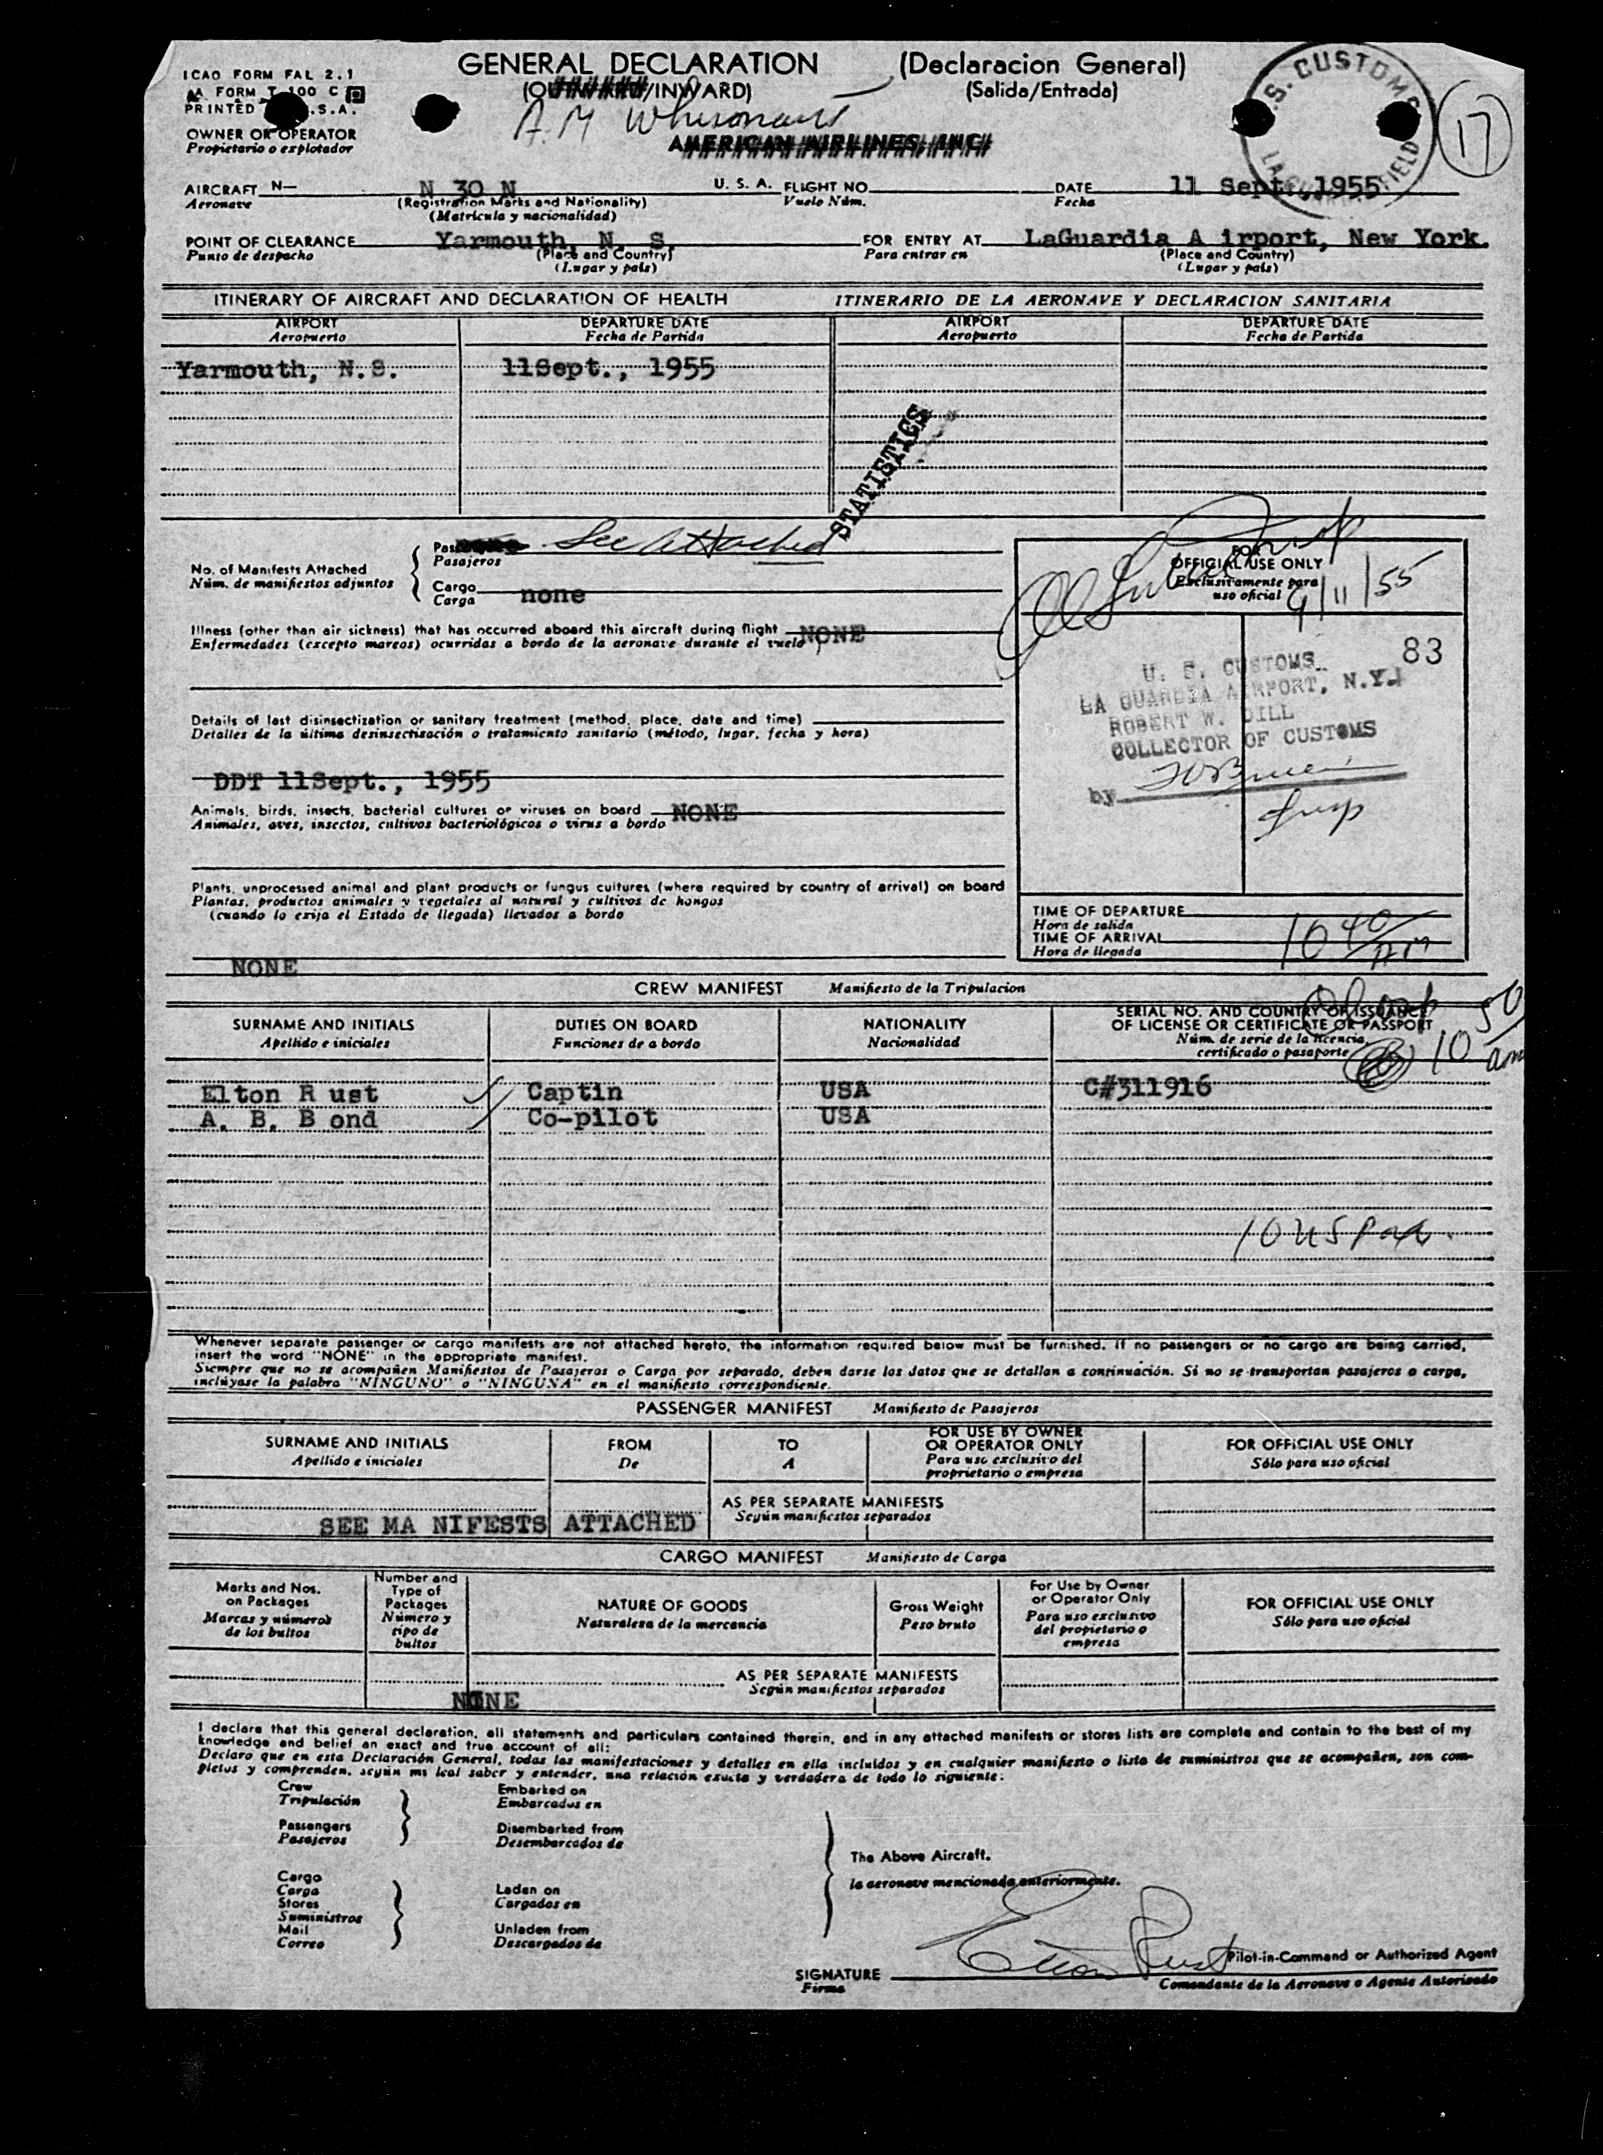 ICAO FORM FAL 2.1
AA FORM T 100 C
PRINTED U.S.A.
OWNER OR OPERATOR
Propietario o explotador
GENERAL DECLARATION (Declaracion General)
(OUTWARD/INWARD) (Salida/Entrada)
A.M Whisonant
AMERICAN AIRLINES, INC.
U.S. CUSTOMS
LA GUARDIA FIELD
17
AIRCRAFT N— N 30 N U. S. A. FLIGHT NO DATE 11 Sept. 1955
Aeronave (Registration Marks and Nationality) Vuelo Núm. Fecha
(Matricula y nacionalidad)
POINT OF CLEARANCE Yarmouth, N. S. FOR ENTRY AT LaGuardia A irport, New York.
Punto de despacho (Place and Country) Para entrar en (Place and Country)
(Lugar y pais) (Lugar y pais)
ITINERARY OF AIRCRAFT AND DECLARATION OF HEALTH ITINERARIO DE LA AERONAVE Y DECLARACION SANITARIA
AIRPORT DEPARTURE DATE AIRPORT DEPARTURE DATE
Aeropuerto Fecha de Partida Aeropuerto Fecha de Partida
Yarmouth, N.S. 11Sept., 1955
STATISTICS
No. of Manifests Attached
Núm. de manifiestos adjuntos
See Attached
Pasajeros
Cargo none
Carga
Illness (other than air sickness) that has occurred aboard this aircraft during flight NONE
Enfermedades (excepto mareos) ocurridas a bordo de la aeronave durante el vuelo
Details of last disinsectization or sanitary treatment (method, place, date and time)
Detalles de la última desinsectisación o tratamiento sanitario (método, lugar, fecha y hora)
DDT 11Sept., 1955
Animals, birds, insects, bacterial cultures or viruses on board NONE
Animales, aves, insectos, cultivos bacteriológicos o virus a bordo
Plants, unprocessed animal and plant products or fungus cultures (where required by country of arrival) on board
Plantas, productos animales y vegetales al natural y cultivos de hongos
(cuando lo exija el Estado de llegada) llevados a bordo
NONE
FOR
OFFICIAL USE ONLY
Exclusivamente para
uso oficial
9/11/55
83
U. S. CUSTOMS
LA GUARDIA AIRPORT, N.Y.
ROBERT W. DILL
COLLECTOR OF CUSTOMS
by
Insp
TIME OF DEPARTURE
Hora de salida
TIME OF ARRIVAL 10 40 AM
Hora de llegada
CREW MANIFEST Manifiesto de la Tripulacion
SURNAME AND INITIALS DUTIES ON BOARD NATIONALITY SERIAL NO. AND COUNTRY OF ISSUANCE
OF LICENSE OR CERTIFICATE OR PASSPORT
Apellido e iniciales Funciones de a bordo Nacionalidad Núm. de serie de la licencia,
certificado o pasaporte
10 50 am
Elton R ust Captin USA C#311916
A. B. B ond Co-pilot USA
10 US Pax.
Whenever separate passenger or cargo manifests are not attached hereto, the information required below must be furnished. If no passengers or no cargo are being carried,
insert the word "NONE" in the appropriate manifest.
Siempre que no se acompañen Manifiestos de Pasajeros o Carga por separado, deben darse los datos que se detallan a continuación. Si no se transportan pasajeros o carga,
inclúyase la palabra "NINGUNO" o "NINGUNA" en el manifiesto correspondiente.
PASSENGER MANIFEST Manifiesto de Pasajeros
SURNAME AND INITIALS FROM TO FOR USE BY OWNER
OR OPERATOR ONLY FOR OFFICIAL USE ONLY
Apellido e iniciales De A Para uso exclusivo del
propietario o empresa Sólo para uso oficial
AS PER SEPARATE MANIFESTS
Según manifiestos separados
SEE MA NIFESTS ATTACHED
CARGO MANIFEST Manifiesto de Carga
Marks and Nos.
on Packages
Marcas y números
de los bultos
Number and
Type of
Packages
Número y
tipo de
bultos
NATURE OF GOODS
Naturaleza de la mercancia
Gross Weight
Peso bruto
For Use by Owner
or Operator Only
Para uso exclusivo
del propietario o
empresa
FOR OFFICIAL USE ONLY
Sólo para uso oficial
AS PER SEPARATE MANIFESTS
Según manifiestos separados
NONE
I declare that this general declaration, all statements and particulars contained therein, and in any attached manifests or stores lists are complete and contain to the best of my
knowledge and belief an exact and true account of all:
Declaro que en esta Declaración General, todas las manifestaciones y detalles en ella incluídos y en cualquier manifiesto o lista de suministros que se acompañen, son com-
pletus y comprenden, según mi leal saber y entender, una relación exacta y verdadera de todo lo siguiente:
Crew Embarked on
Tripulación Embarcados en
Passengers Disembarked from
Pasajeros Desembarcados de
The Above Aircraft.
la aeronave mencionada anteriormente.
Cargo
Carga Laden on
Stores Cargados en
Suministros
Mail Unladen from
Correo Descargados de
SIGNATURE Elton Rust Pilot-in-Command or Authorized Agent
Firma Comandante de la Aeronave o Agente Autorizado